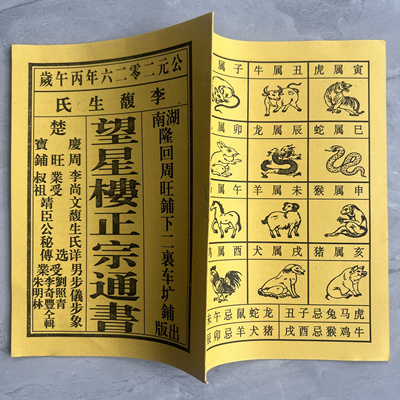 公元二零二六年丙午歲
李馥生氏
湖南隆回周旺鋪下二裏车垆鋪出版
望星樓正宗通書
楚
慶周李尚文馥生氏详男步儀步象
旺業受选受劉照青李奇豐仝輯
寶鋪叔祖靖臣公秘傳業朱明林
属子 牛属丑 虎属寅
属卯 龙属辰 蛇属巳
属午 羊属未 猴属申
属酉 犬属戌 猪属亥
午忌鼠蛇龙 丑子忌兔马虎
卯忌羊犬猪 戌酉忌猴鸡牛